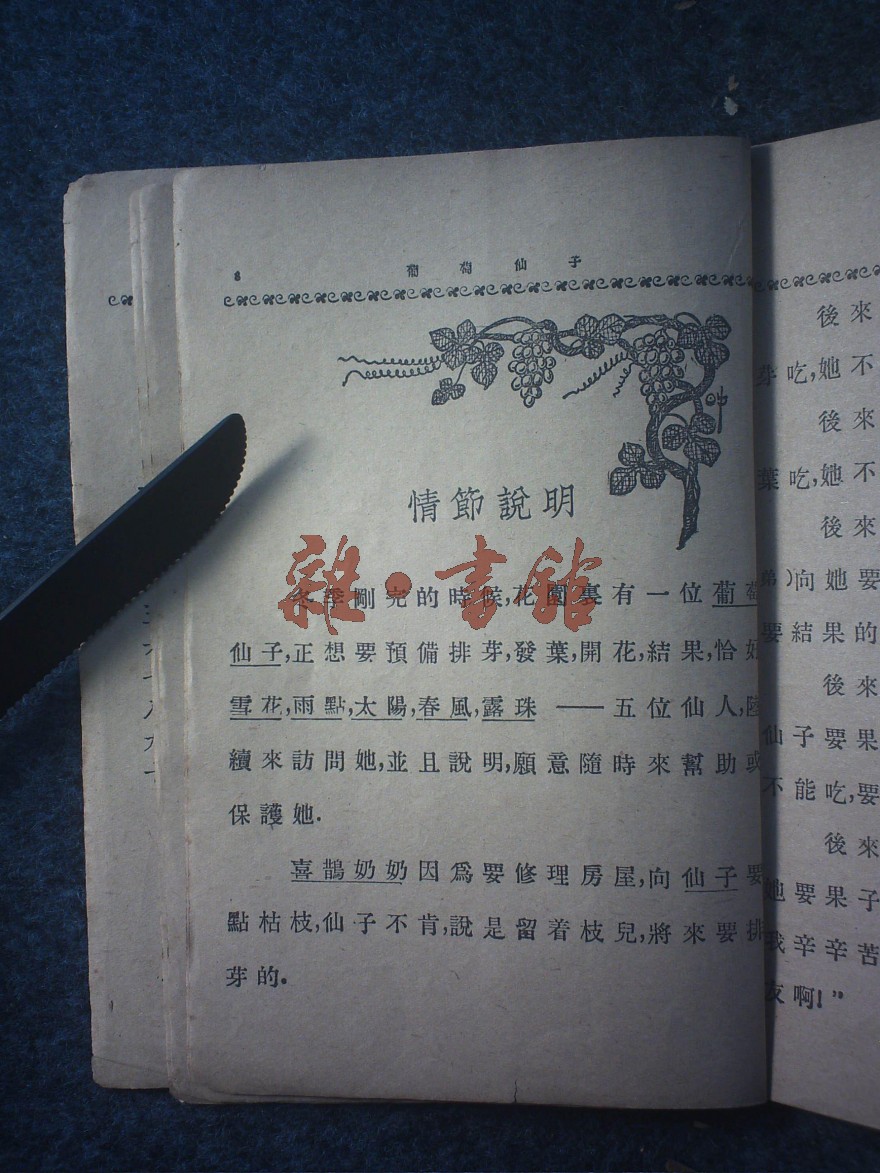 8
葡萄仙子
情節說明
冬季剛完的時候,花園裏有一位葡萄
仙子,正想要預備排芽,發葉,開花,結果,恰好
雪花,雨點,太陽,春風,露珠——五位仙人,陸
續來訪問她,並且說明,願意隨時來幫助或
保護她.
喜鵲奶奶因爲要修理房屋,向仙子要
點枯枝,仙子不肯,說是留着枝兒,將來要排
芽的.
後來
芽吃,她不
後來
葉吃,她不
後來
弟)向她要
要結果的
後來
仙子要果
不能吃,要
後來
她要果子
我辛辛苦
友啊!”
雜·書館